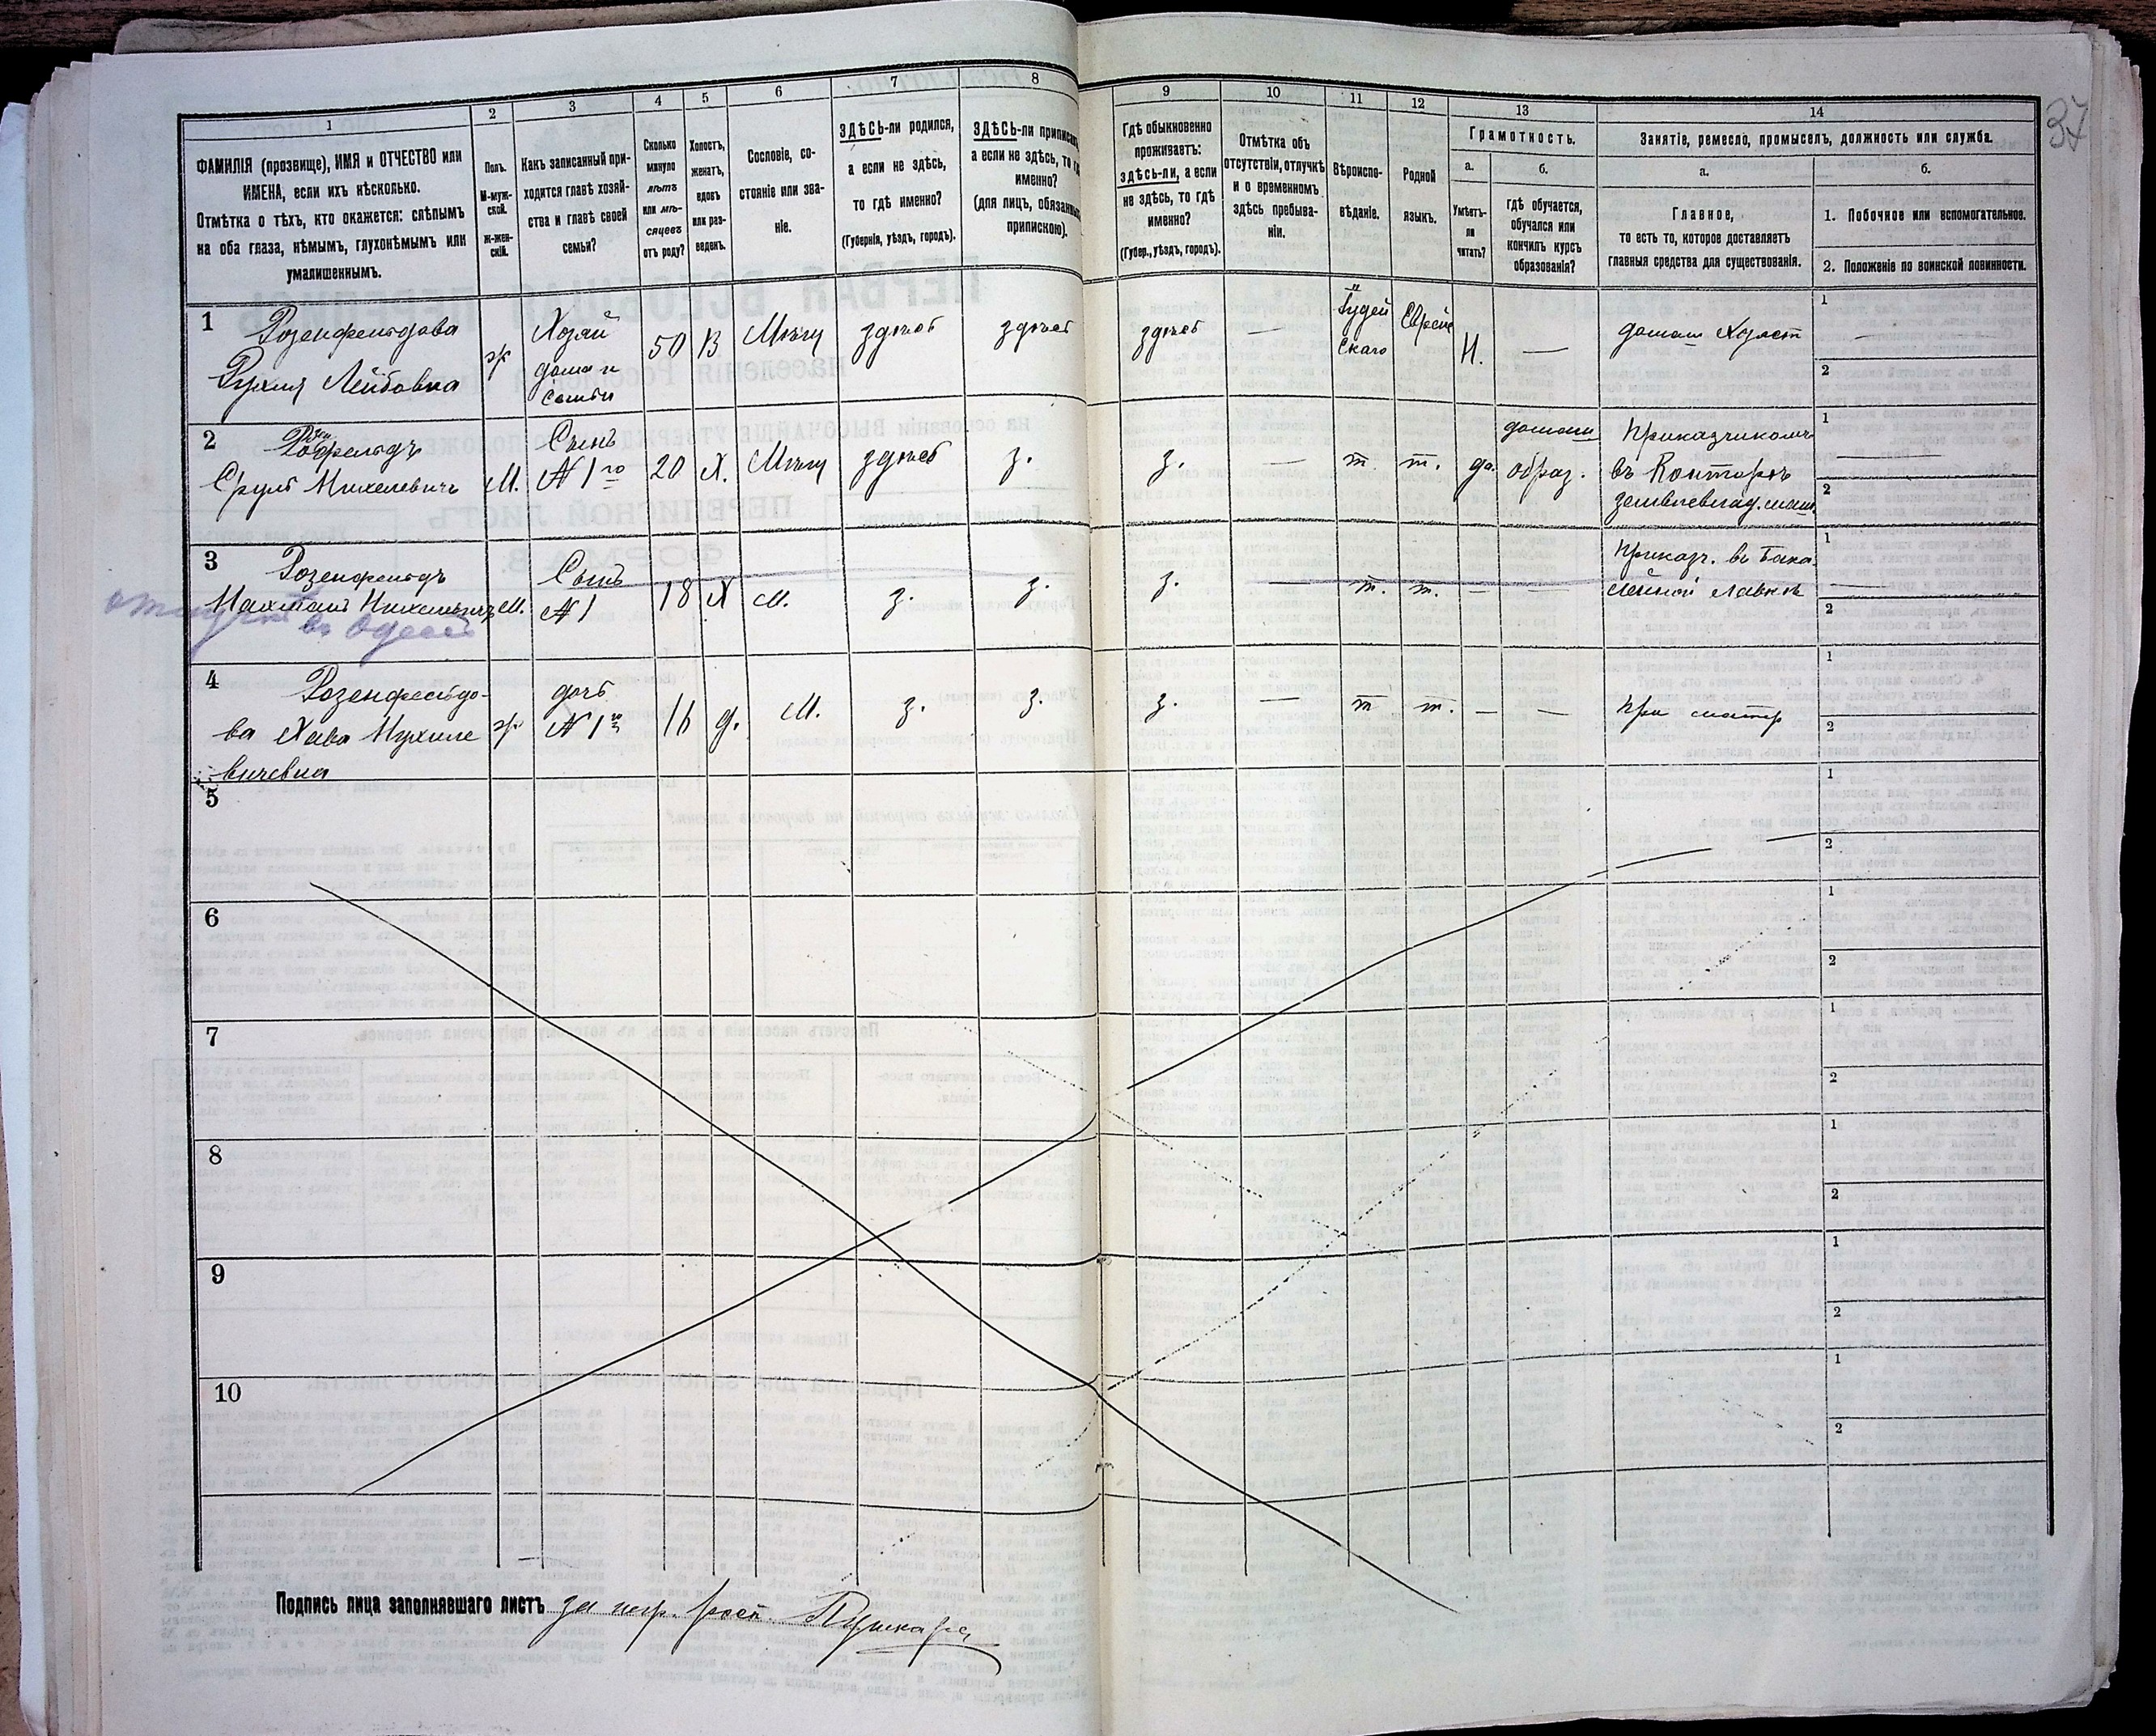 37
1
2
3
4
5
6
7
8
9
10
11
12
13
14
ФАМИЛІЯ (прозвище), ИМЯ и ОТЧЕСТВО или
ИМЕНА, если ихъ нѣсколько.
Отмѣтка о тѣхъ, кто окажется: слѣпымъ
на оба глаза, нѣмымъ, глухонѣмымъ или
умалишеннымъ.
Полъ.
М-муж-
ской.
ж-жен-
скій.
Какъ записанный при-
ходится главѣ хозяй-
ства и главѣ своей
семьи?
Сколько
минуло
лѣтъ
или мѣ-
сяцевъ
отъ роду?
Холостъ,
женатъ,
вдовъ
или раз-
веденъ.
Сословіе, со-
стояніе или зва-
ніе.
ЗДѢСЬ-ли родился,
а если не здѣсь,
то гдѣ именно?
(Губернія, уѣздъ, городъ).
ЗДѢСЬ-ли приписанъ,
а если не здѣсь, то гдѣ
именно?
(для лицъ, обязанныхъ
припискою).
Гдѣ обыкновенно
проживаетъ:
здѣсь-ли, а если
не здѣсь, то гдѣ
именно?
(Губер., уѣздъ, городъ).
Отмѣтка объ
отсутствіи, отлучкѣ
и о временномъ
здѣсь пребыва-
ніи.
Вѣроиспо-
вѣданіе.
Родной
языкъ.
Грамотность.
а.
Умѣетъ-
ли
читать?
б.
гдѣ обучается,
обучался или
кончилъ курсъ
образованія?
Занятіе, ремесло, промыселъ, должность или служба.
а.
Главное,
то есть то, которое доставляетъ
главныя средства для существованія.
б.
1. Побочное или вспомогательное.
2. Положеніе по воинской повинности.
1 Розенфельдова
Рухля Лейбовна
ж
Хозяй
дома и
семьи
50 В Мѣщ здѣсь здѣсь здѣсь —
Іудей
скаго
Еврейс
Н. —
1
2
2 Розенфельдъ
Сруль Михелевичъ
М.
Сынъ
№ 1го
20 Х. Мѣщ здѣсь з. з. — т. т. да.
домашн
образ.
Приказчикомъ
въ Конторѣ
1
2
3 Розенфельдъ
М.
Сынъ
№ 1
18 Х М. з. з. з. — т. т. — —
Приказч. въ бака
лейной лавкѣ
въ Одессѣ
1
2
4 Розенфельдо-
ва Хава Михеле
вичевна
ж
дочь
№ 1го
16 д. М. з. з. з. — т т. — —
при матер
1
2
5
1
2
6
1
2
7
1
2
8
1
2
9
1
2
10
1
2
Подпись лица заполнявшаго листъ за негр. росп. Пушкарь